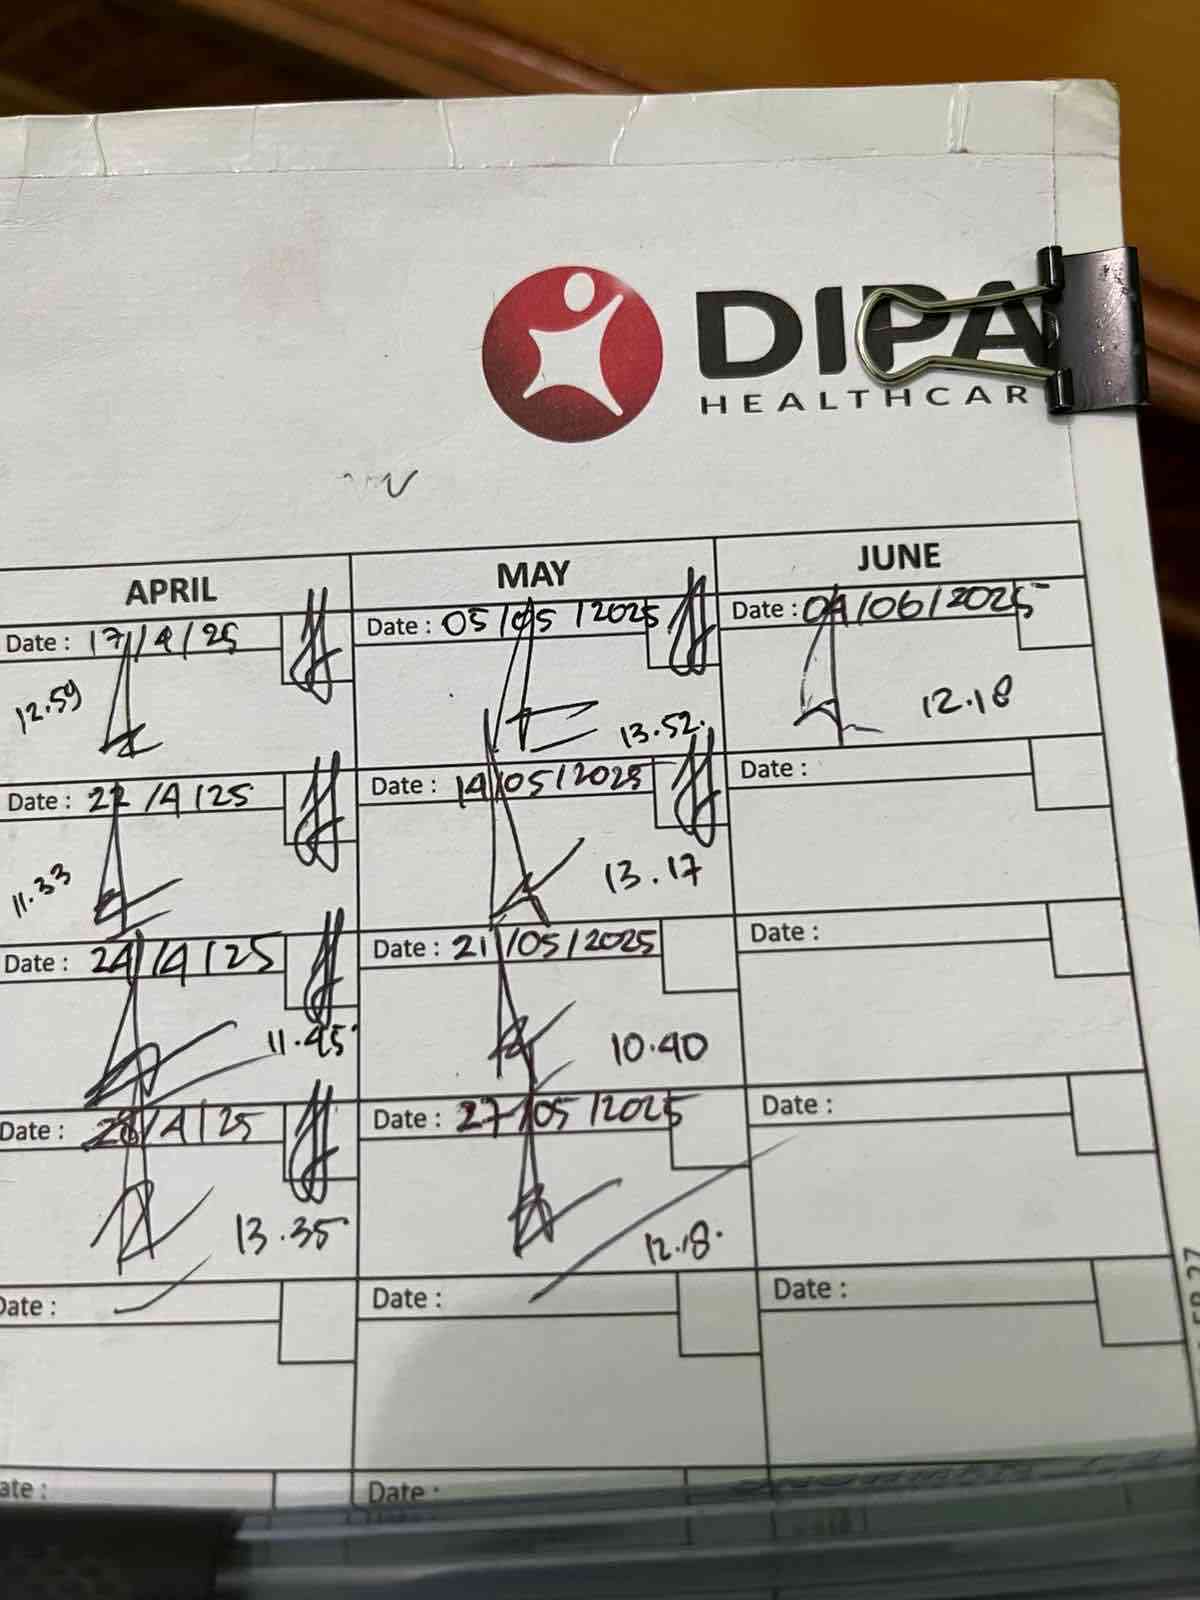 DIPA
HEALTHCAR
APRIL MAY JUNE
Date : 17/4/25 Date : 05/05/2025 Date : 04/06/2025
12.59 13.52. 12.18
Date : 22/4/25 Date : 14/05/2025 Date :
11.33 13.17
Date : 24/4/25 Date : 21/05/2025 Date :
11.45 10.40
Date : 28/4/25 Date : 27/05/2025 Date :
13.35 12.18.
Date : Date : Date :
ate : Date :